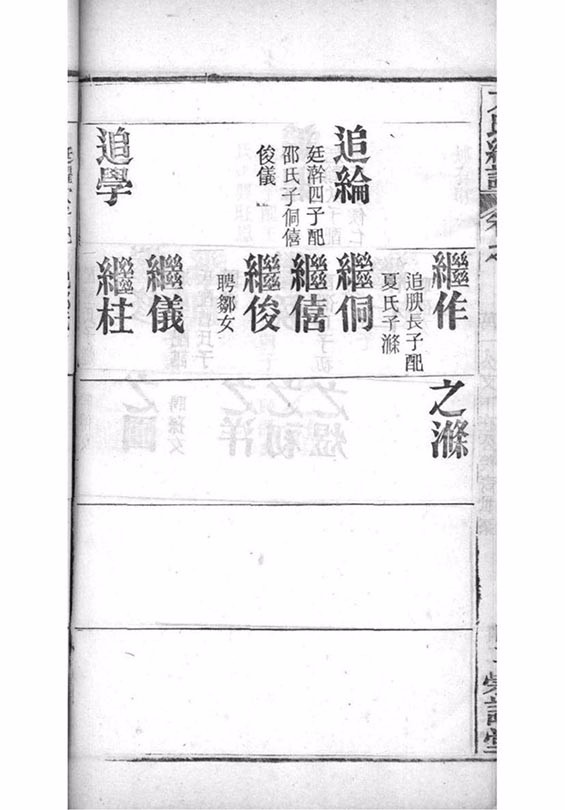 追綸
廷瀚四子配
邵氏子侗僖
俊儀
追學
繼作
追腴長子配
夏氏子滌
繼侗
繼僖
繼俊
聘鄒女
繼儀
繼柱
之滌